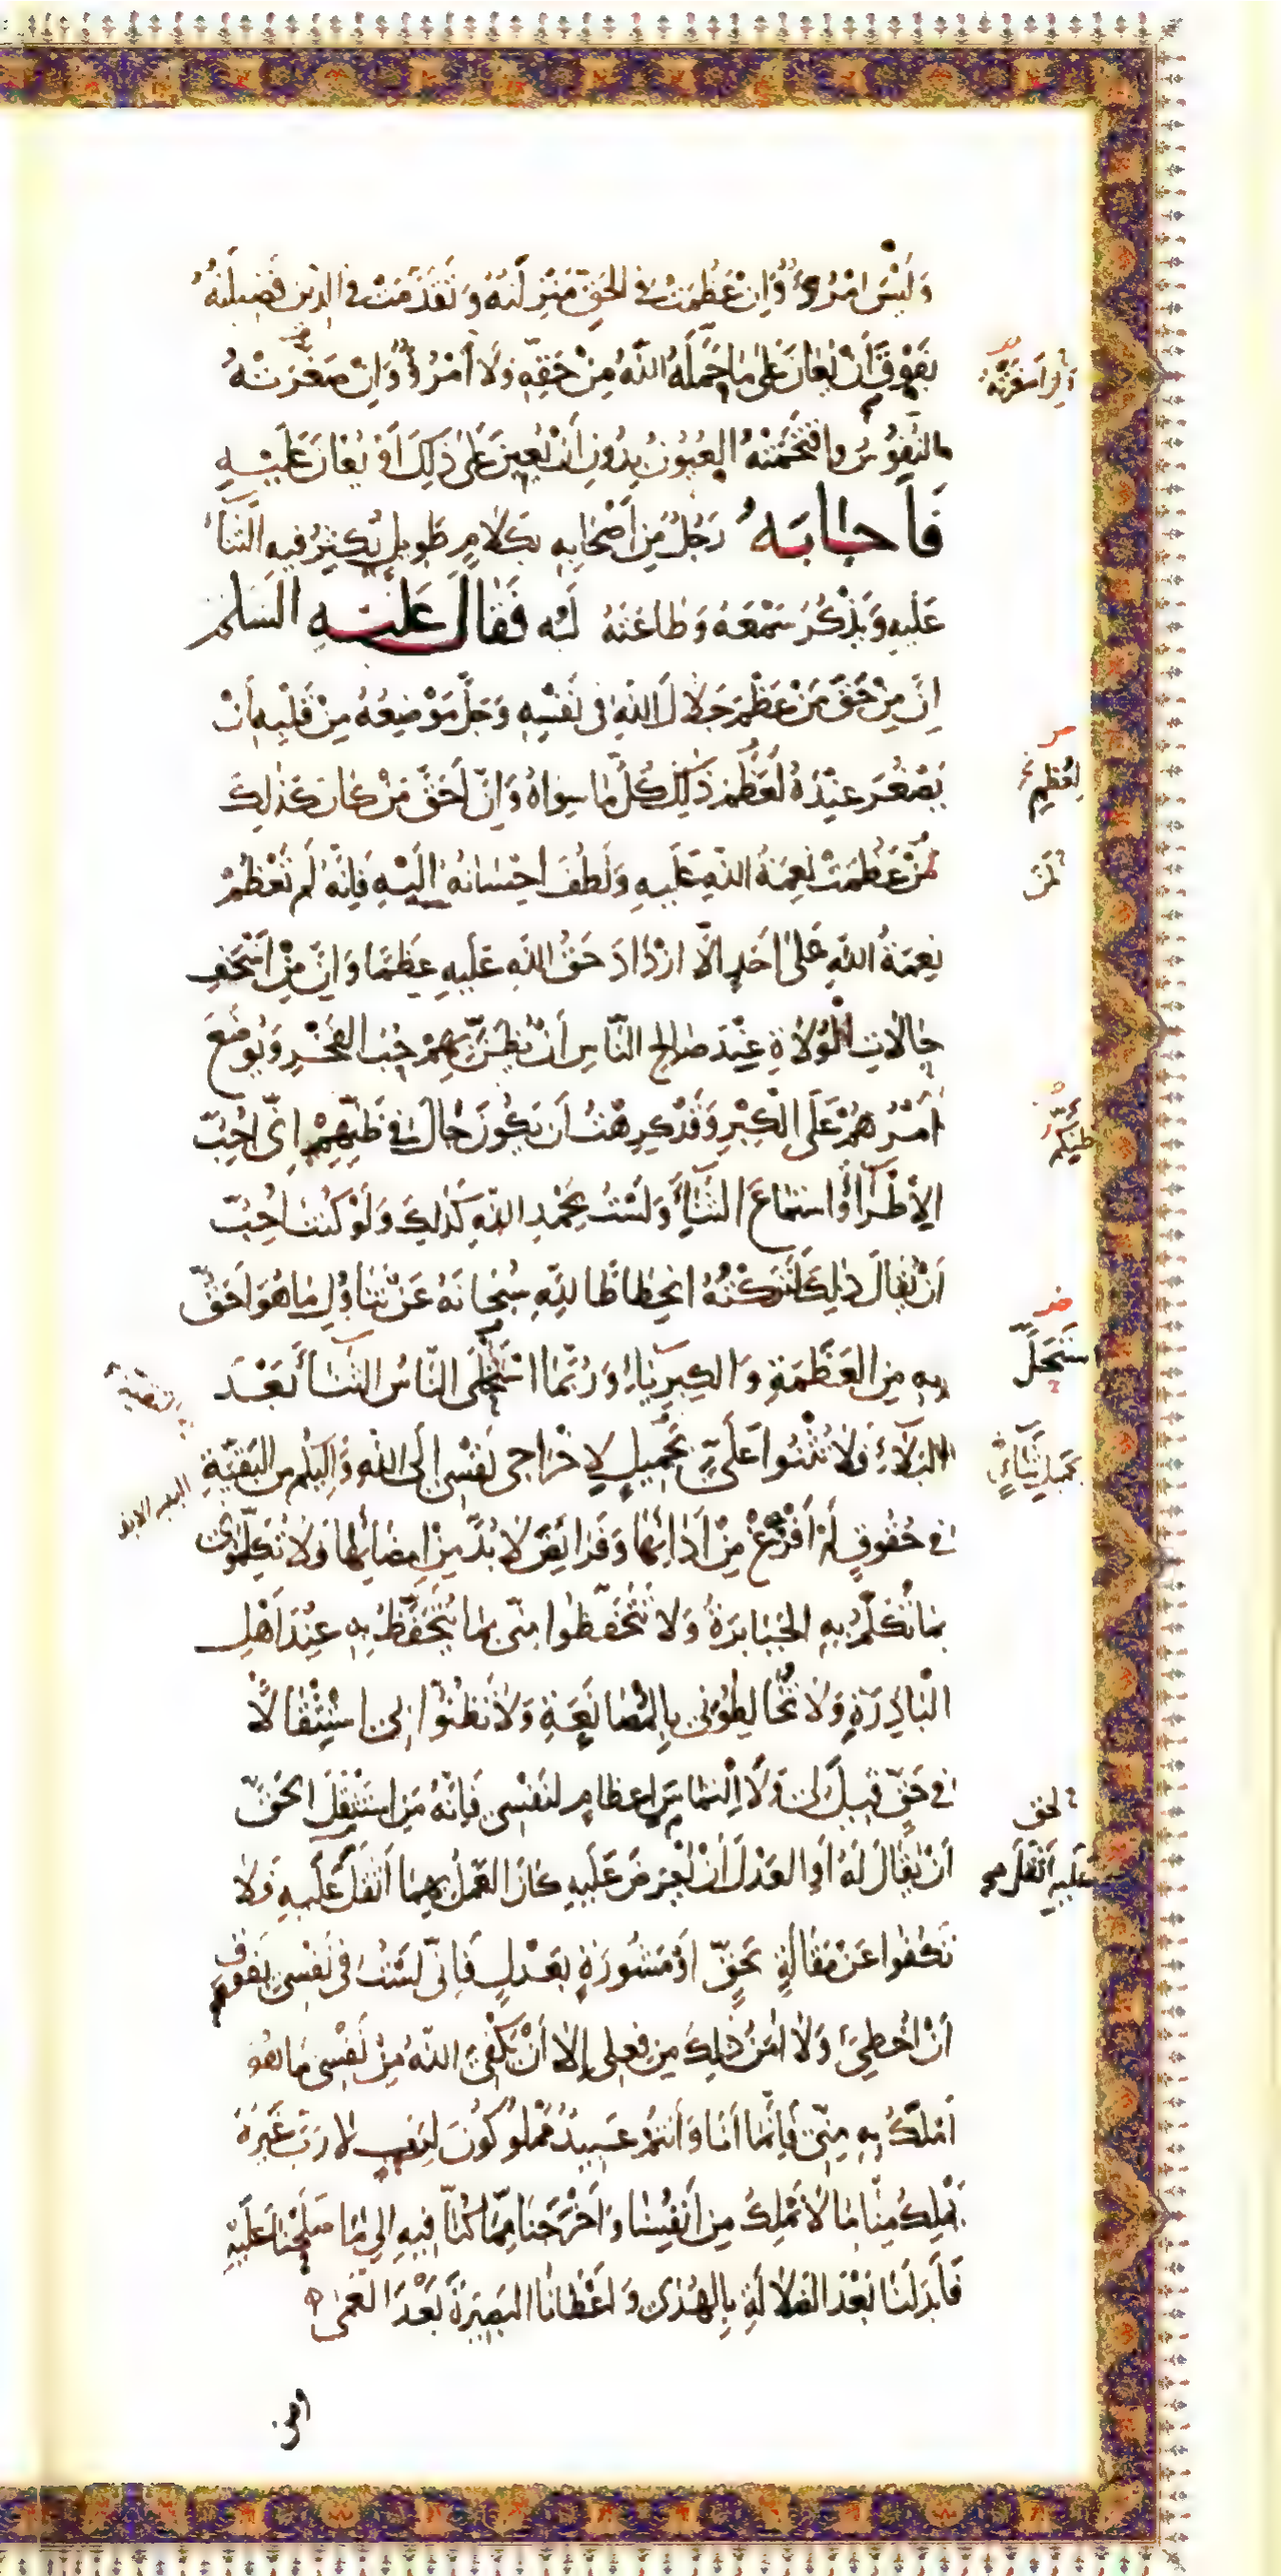 وَلَيْسَ امْرُؤٌ وَاِنْ عَظُمَتْ فِي الحَقِّ مَنْزِلَتُهُ وَتَقَدَّمَتْ فِي الدِّينِ فَضِيلَتُهُ
بِفَوْقِ أَنْ يُعَانَ عَلىٰ مَا حَمَّلَهُ اللّهُ مِنْ حَقِّهِ وَلَا امْرُؤٌ وَاِنْ صَغَّرَتْهُ
النُّفُوسُ وَاقْتَحَمَتْهُ العُيُونُ بِدُونِ أَنْ يُعِينَ عَلىٰ ذٰلِكَ اَوْ يُعَانَ عَلَيْهِ
فَاَجابَهُ رَجُلٌ مِنْ اَصْحَابِهِ بِكَلَامٍ طَوِيلٍ يُكْثِرُ فِيهِ الثَّنَآءَ
عَلَيهِ وَيَذْكُرُ سَمْعَهُ وَطَاعَتَهُ لَهُ فَقَالَ عَلَيْهِ السَّلم
اِنَّ مِنْ حَقِّ مَنْ عَظُمَ جَلَالُ اللّهِ فِي نَفْسِهِ وَجَلَّ مَوْضِعُهُ مِنْ قَلْبِهِ اَنْ
يَصْغُرَ عِنْدَهُ لِعِظَمِ ذٰلِكَ كُلُّ مَا سِوَاهُ وَاِنَّ اَحَقَّ مَنْ كَانَ كَذٰلِكَ
لَمَنْ عَظُمَتْ نِعْمَةُ اللّهِ عَلَيهِ وَلَطُفَ اِحْسَانُهُ اِلَيْهِ فَاِنَّهُ لَمْ تَعْظُمْ
نِعْمَةُ اللّهِ عَلىٰ اَحَدٍ اِلَّا ازْدَادَ حَقُّ اللّهِ عَلَيهِ عِظَمًا وَاِنَّ مِنْ اَسْخَفِ
حَالَاتِ الْوُلَاةِ عِنْدَ صَالِحِ النَّاسِ اَنْ يُظَنَّ بِهِمْ حُبُّ الفَخْرِ وَيُوضَعَ
اَمْرُهُمْ عَلَى الْكِبْرِ وَقَدْ كَرِهْتُ اَنْ يَكُونَ جَالَ فِي ظَنِّهِمْ اِنِّي اُحِبُّ
الاِطْرَآءَ وَاسْتِمَاعَ الثَّنَآءِ وَلَسْتُ بِحَمْدِ اللّهِ كَذٰلِكَ وَلَوْ كُنْتُ اُحِبُّ
اَنْ يُقَالَ ذٰلِكَ لَتَرَكْتُهُ انْحِطَاطًا لِلّهِ سُبْحَانَهُ عَنْ تَنَاوُلِ مَا هُوَ اَحَقُّ
بِهِ مِنَ العَظَمَةِ وَالكِبرِيَاءِ وَرُبَّمَا اسْتَحْلَى النَّاسُ الثَّنَآءَ بَعْدَ
البَلَآءِ وَلَا تُثْنُوا عَلَيَّ بِجَمِيلٍ لِاِخْرَاجِي نَفْسِي اِلَى اللّهِ وَاِلَيْكُم مِنَ البَقِيَّةِ
فِي حُقُوقٍ لَمْ اَفْرُغْ مِنْ اَدَائِهَا وَفَرَائِضَ لَا بُدَّ مِنْ اِمْضَائِهَا وَلَا تُكَلِّمُونِي
بِمَا تُكَلَّمُ بِهِ الجَبَابِرَةُ وَلَا تَتَحَفَّظُوا مِنِّي بِمَا يُتَحَفَّظُ بِهِ عِنْدَ اَهْلِ
الْبَادِرَةِ وَلَا تُخَالِطُونِي بِالْمُصَانَعَةِ وَلَا تَظُنُّوا بِي اسْتِثْقَالًا
فِي حَقٍّ قِيلَ لِي وَلَا الْتِمَاسَ اِعْظَامٍ لِنَفْسِي فَاِنَّهُ مَنِ اسْتَثْقَلَ الحَقَّ
اَنْ يُقَالَ لَهُ اَوِ العَدْلَ اَنْ يُعْرَضَ عَلَيهِ كَانَ العَمَلُ بِهِمَا اَثْقَلَ عَلَيهِ فَلَا
تَكُفُّوا عَنْ مَقَالَةٍ بِحَقٍّ اَوْ مَشُورَةٍ بِعَدْلٍ فَاِنِّي لَسْتُ فِي نَفْسِي بِفَوْقِ
اَنْ اُخْطِئَ وَلَا اٰمَنُ ذٰلِكَ مِنْ فِعْلِي اِلَّا اَنْ يَكْفِيَ اللّهُ مِنْ نَفْسِي مَا هُوَ
اَمْلَكُ بِهِ مِنِّي فَاِنَّمَا اَنَا وَاَنْتُمْ عَبِيدٌ مَمْلُوكُونَ لِرَبٍّ لَا رَبَّ غَيْرُهُ
يَمْلِكُ مِنَّا مَا لَا نَمْلِكُ مِنْ اَنْفُسِنَا وَاَخْرَجَنَا مِمَّا كُنَّا فِيهِ اِلىٰ مَا صَلَحْنَا عَلَيْهِ
فَاَبْدَلَنَا بَعْدَ الضَّلَالَةِ بِالهُدىٰ وَاَعْطَانَا البَصِيرَةَ بَعْدَ العَمىٰ
لِعُظْمِ
لمن
ظَنِّكُم
الحق
عَلَيهِ اَثْقَلَ